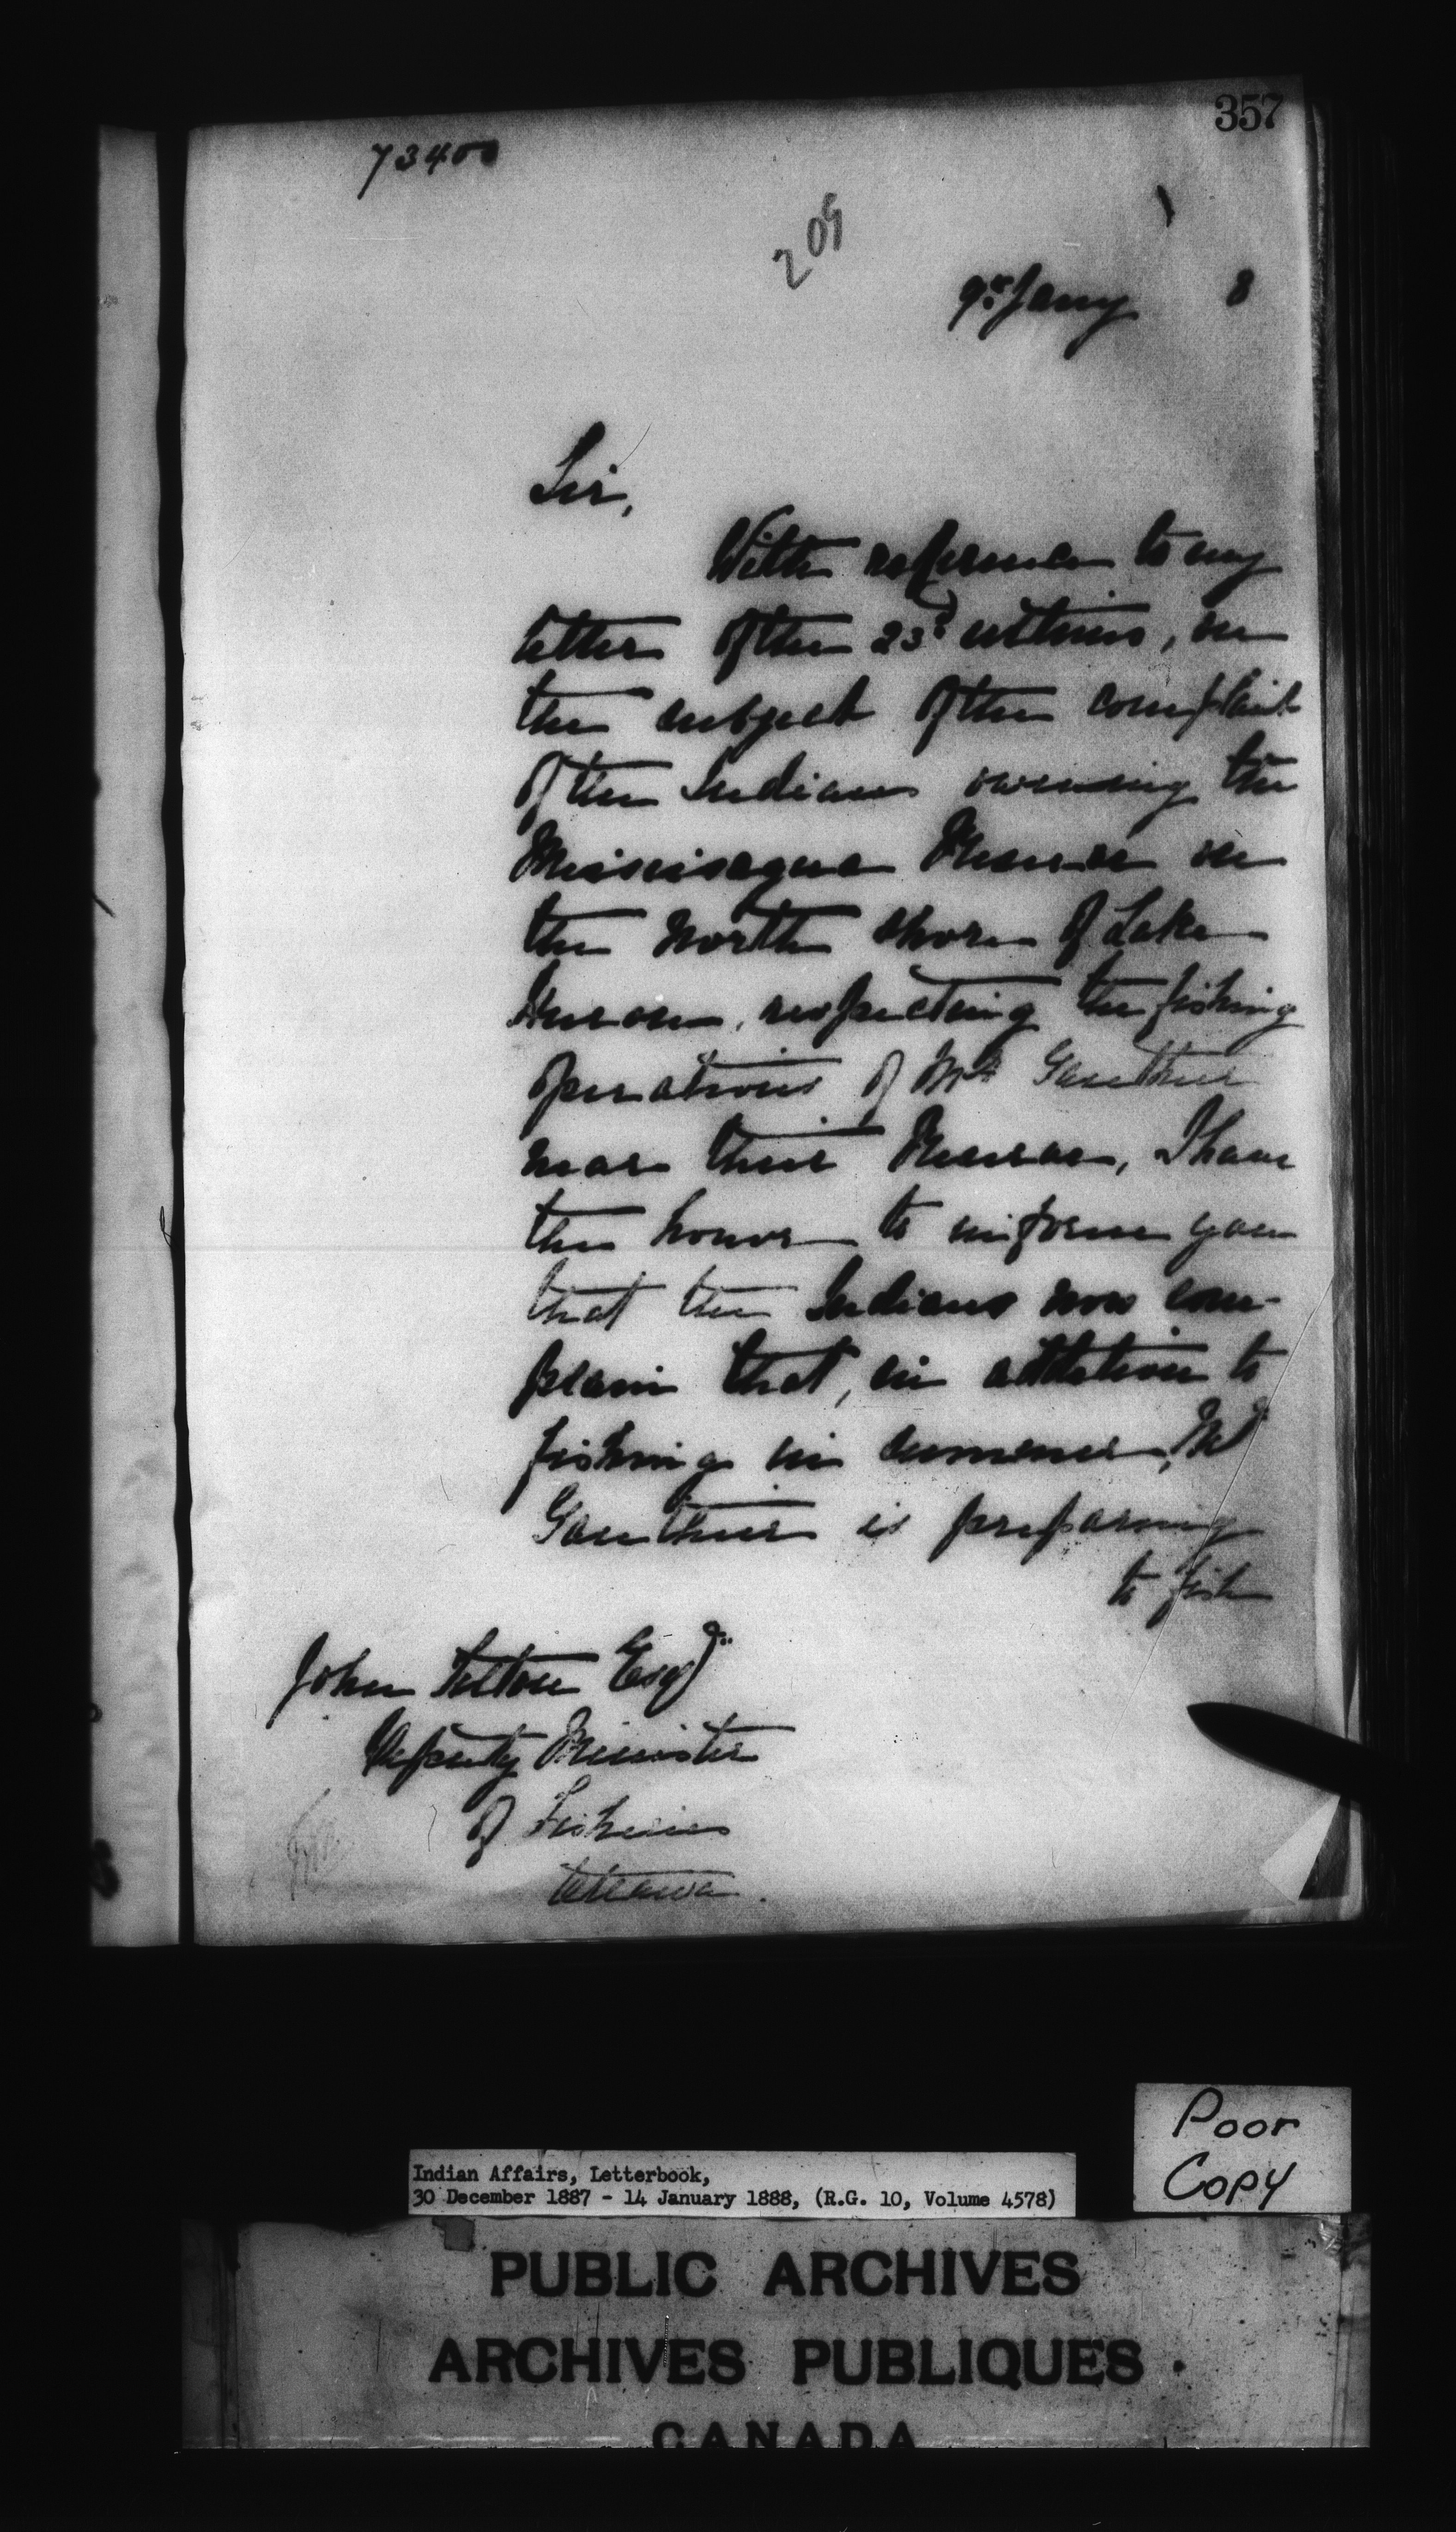 357
73400
209
9th Jany 8
Sir,
With reference to my
letter of the 23d ultimo, on
the subject of the complaint
of the Indians owning the
Mississagua Reserve on
the North shore of Lake
Huron, respecting the fishing
operations of Mr Gauthier
near their Reserve, I have
the honor to inform you
that the Indians now com-
plain that, in addition to
fishing in summer, Mr
Gauthier is preparing
to fish
John Tilton Esqr
Deputy Minister
of Fisheries
Ottawa.
Poor
Copy
Indian Affairs, Letterbook,
30 December 1887 - 14 January 1888, (R.G. 10, Volume 4578)
PUBLIC ARCHIVES
ARCHIVES PUBLIQUES
CANADA